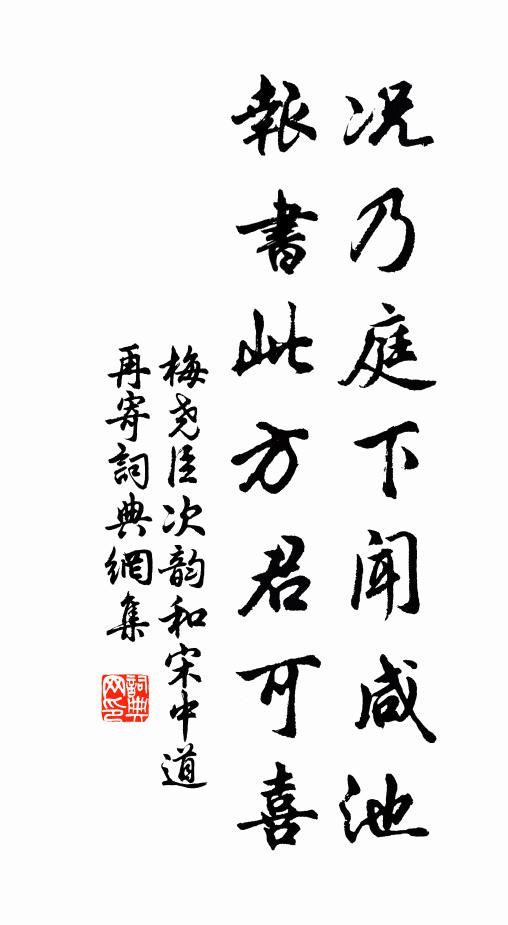 况乃庭下闻咸池
報書此方君可喜
梅尧臣次韵和宋中道
再寄詞典網集
詞典
网印